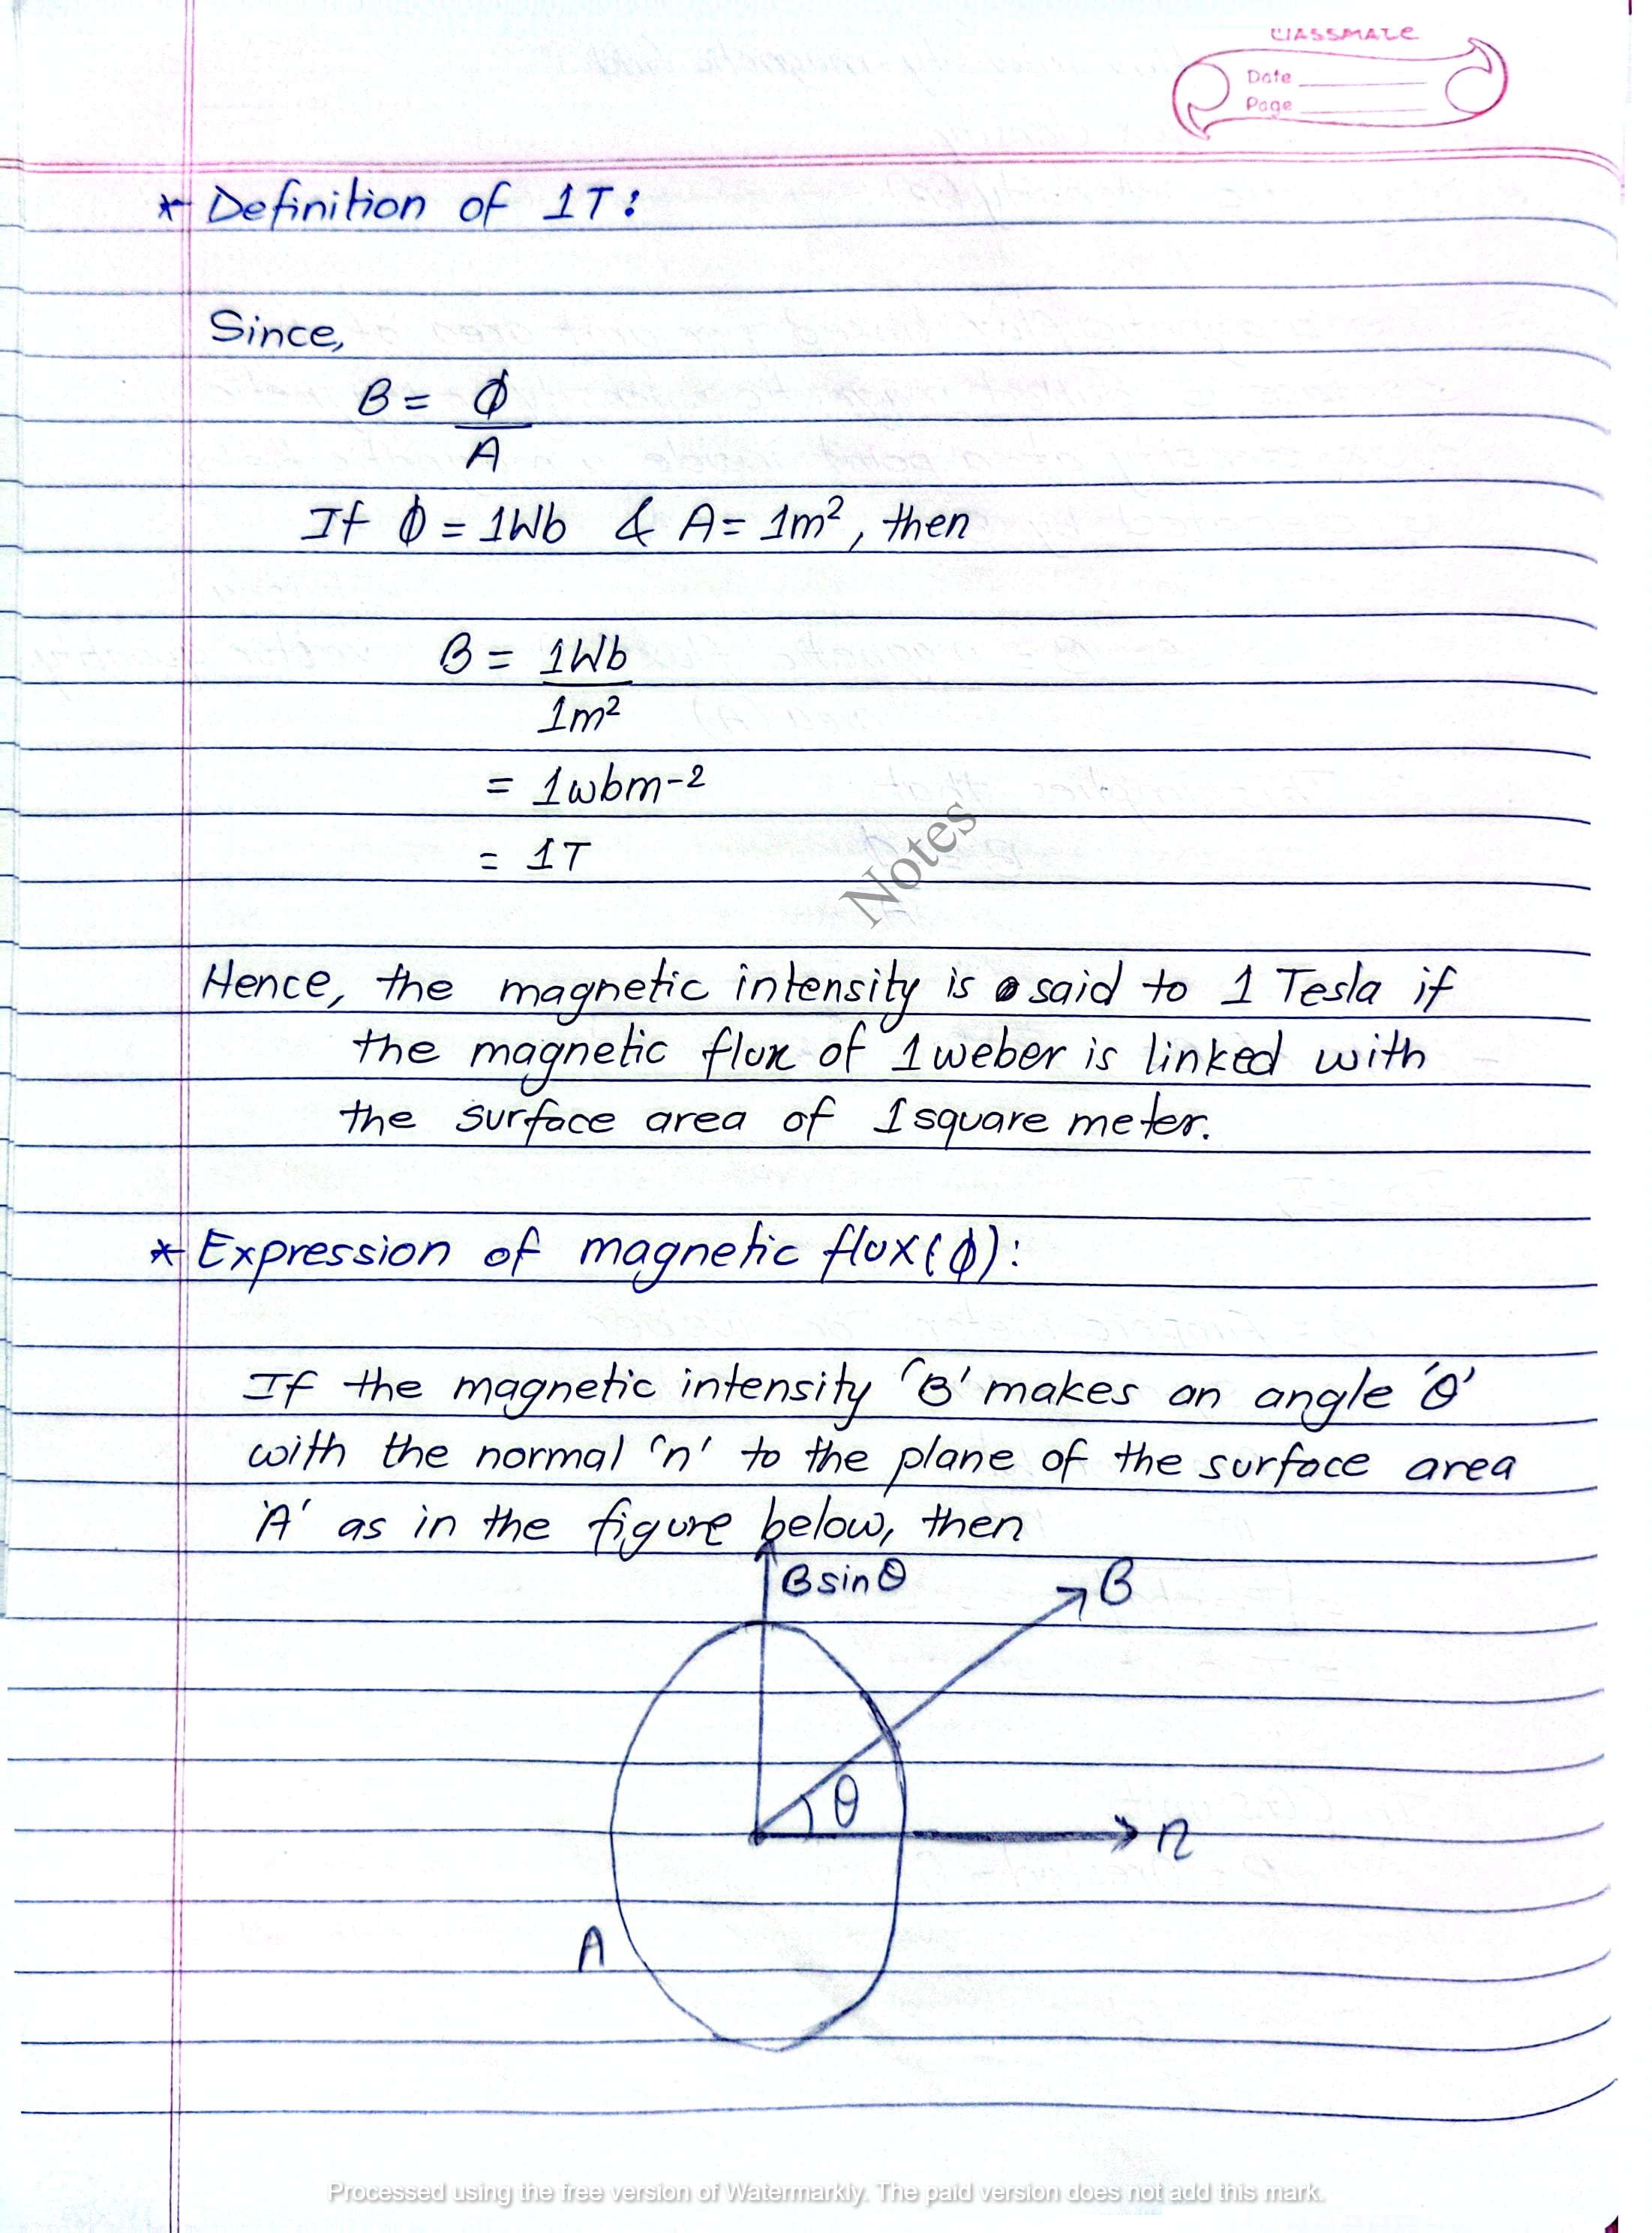 classmate
Date
Page
* Definition of 1T:
Since,
B = ϕ
A
If ϕ = 1Wb & A = 1m², then
B = 1Wb
1m²
= 1wbm-2
= 1T
Notes
Hence, the magnetic intensity is said to 1 Tesla if
the magnetic flux of 1 weber is linked with
the surface area of 1 square meter.
* Expression of magnetic flux(ϕ):
If the magnetic intensity 'B' makes an angle 'θ'
with the normal 'n' to the plane of the surface area
'A' as in the figure below, then
Bsinθ
B
θ
n
A
Processed using the free version of Watermarkly. The paid version does not add this mark.